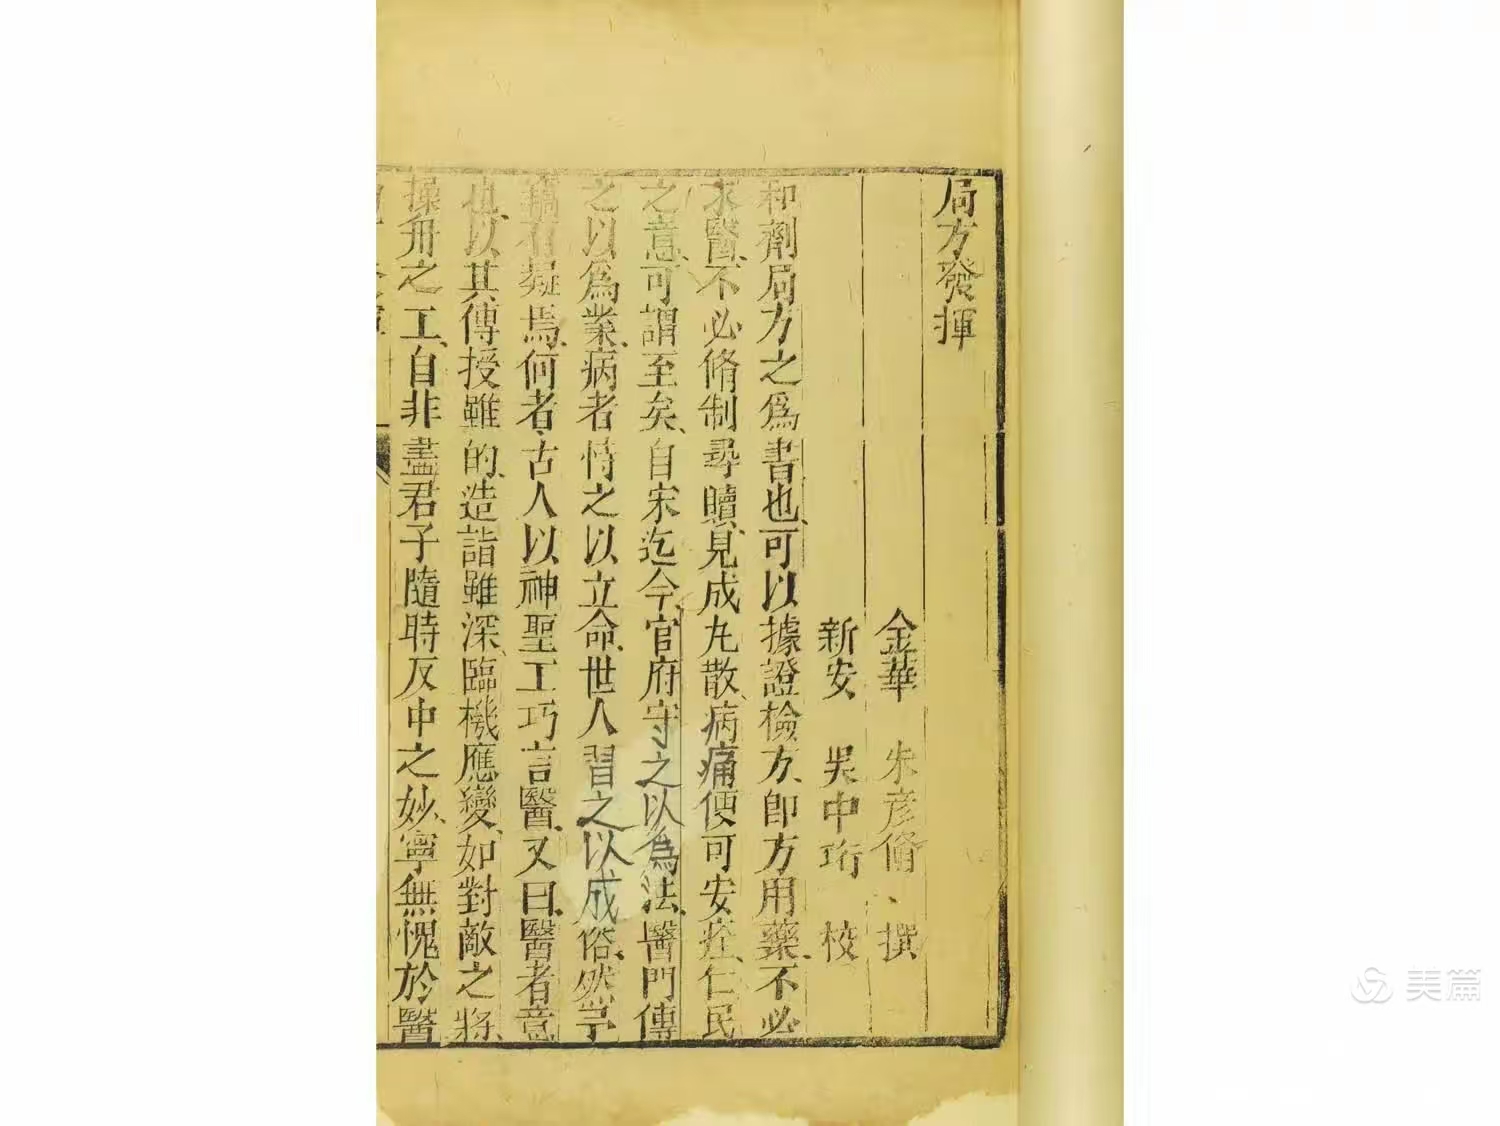 局方發揮
金華 朱彥脩 撰
新安 吳中珩 校
和劑局方之爲書也可以據證檢方卽方用藥不必
求醫不必脩制尋贖見成丸散病痛便可安痊仁民
之意可謂至矣自宋迄今官府守之以爲法醫門傳
之以爲業病者恃之以立命世人習之以成俗然予
竊有疑焉何者古人以神聖工巧言醫又曰醫者意
也以其傳授雖的造詣雖深臨機應變如對敵之將
操舟之工自非盡君子隨時反中之妙寧無愧於醫
美篇